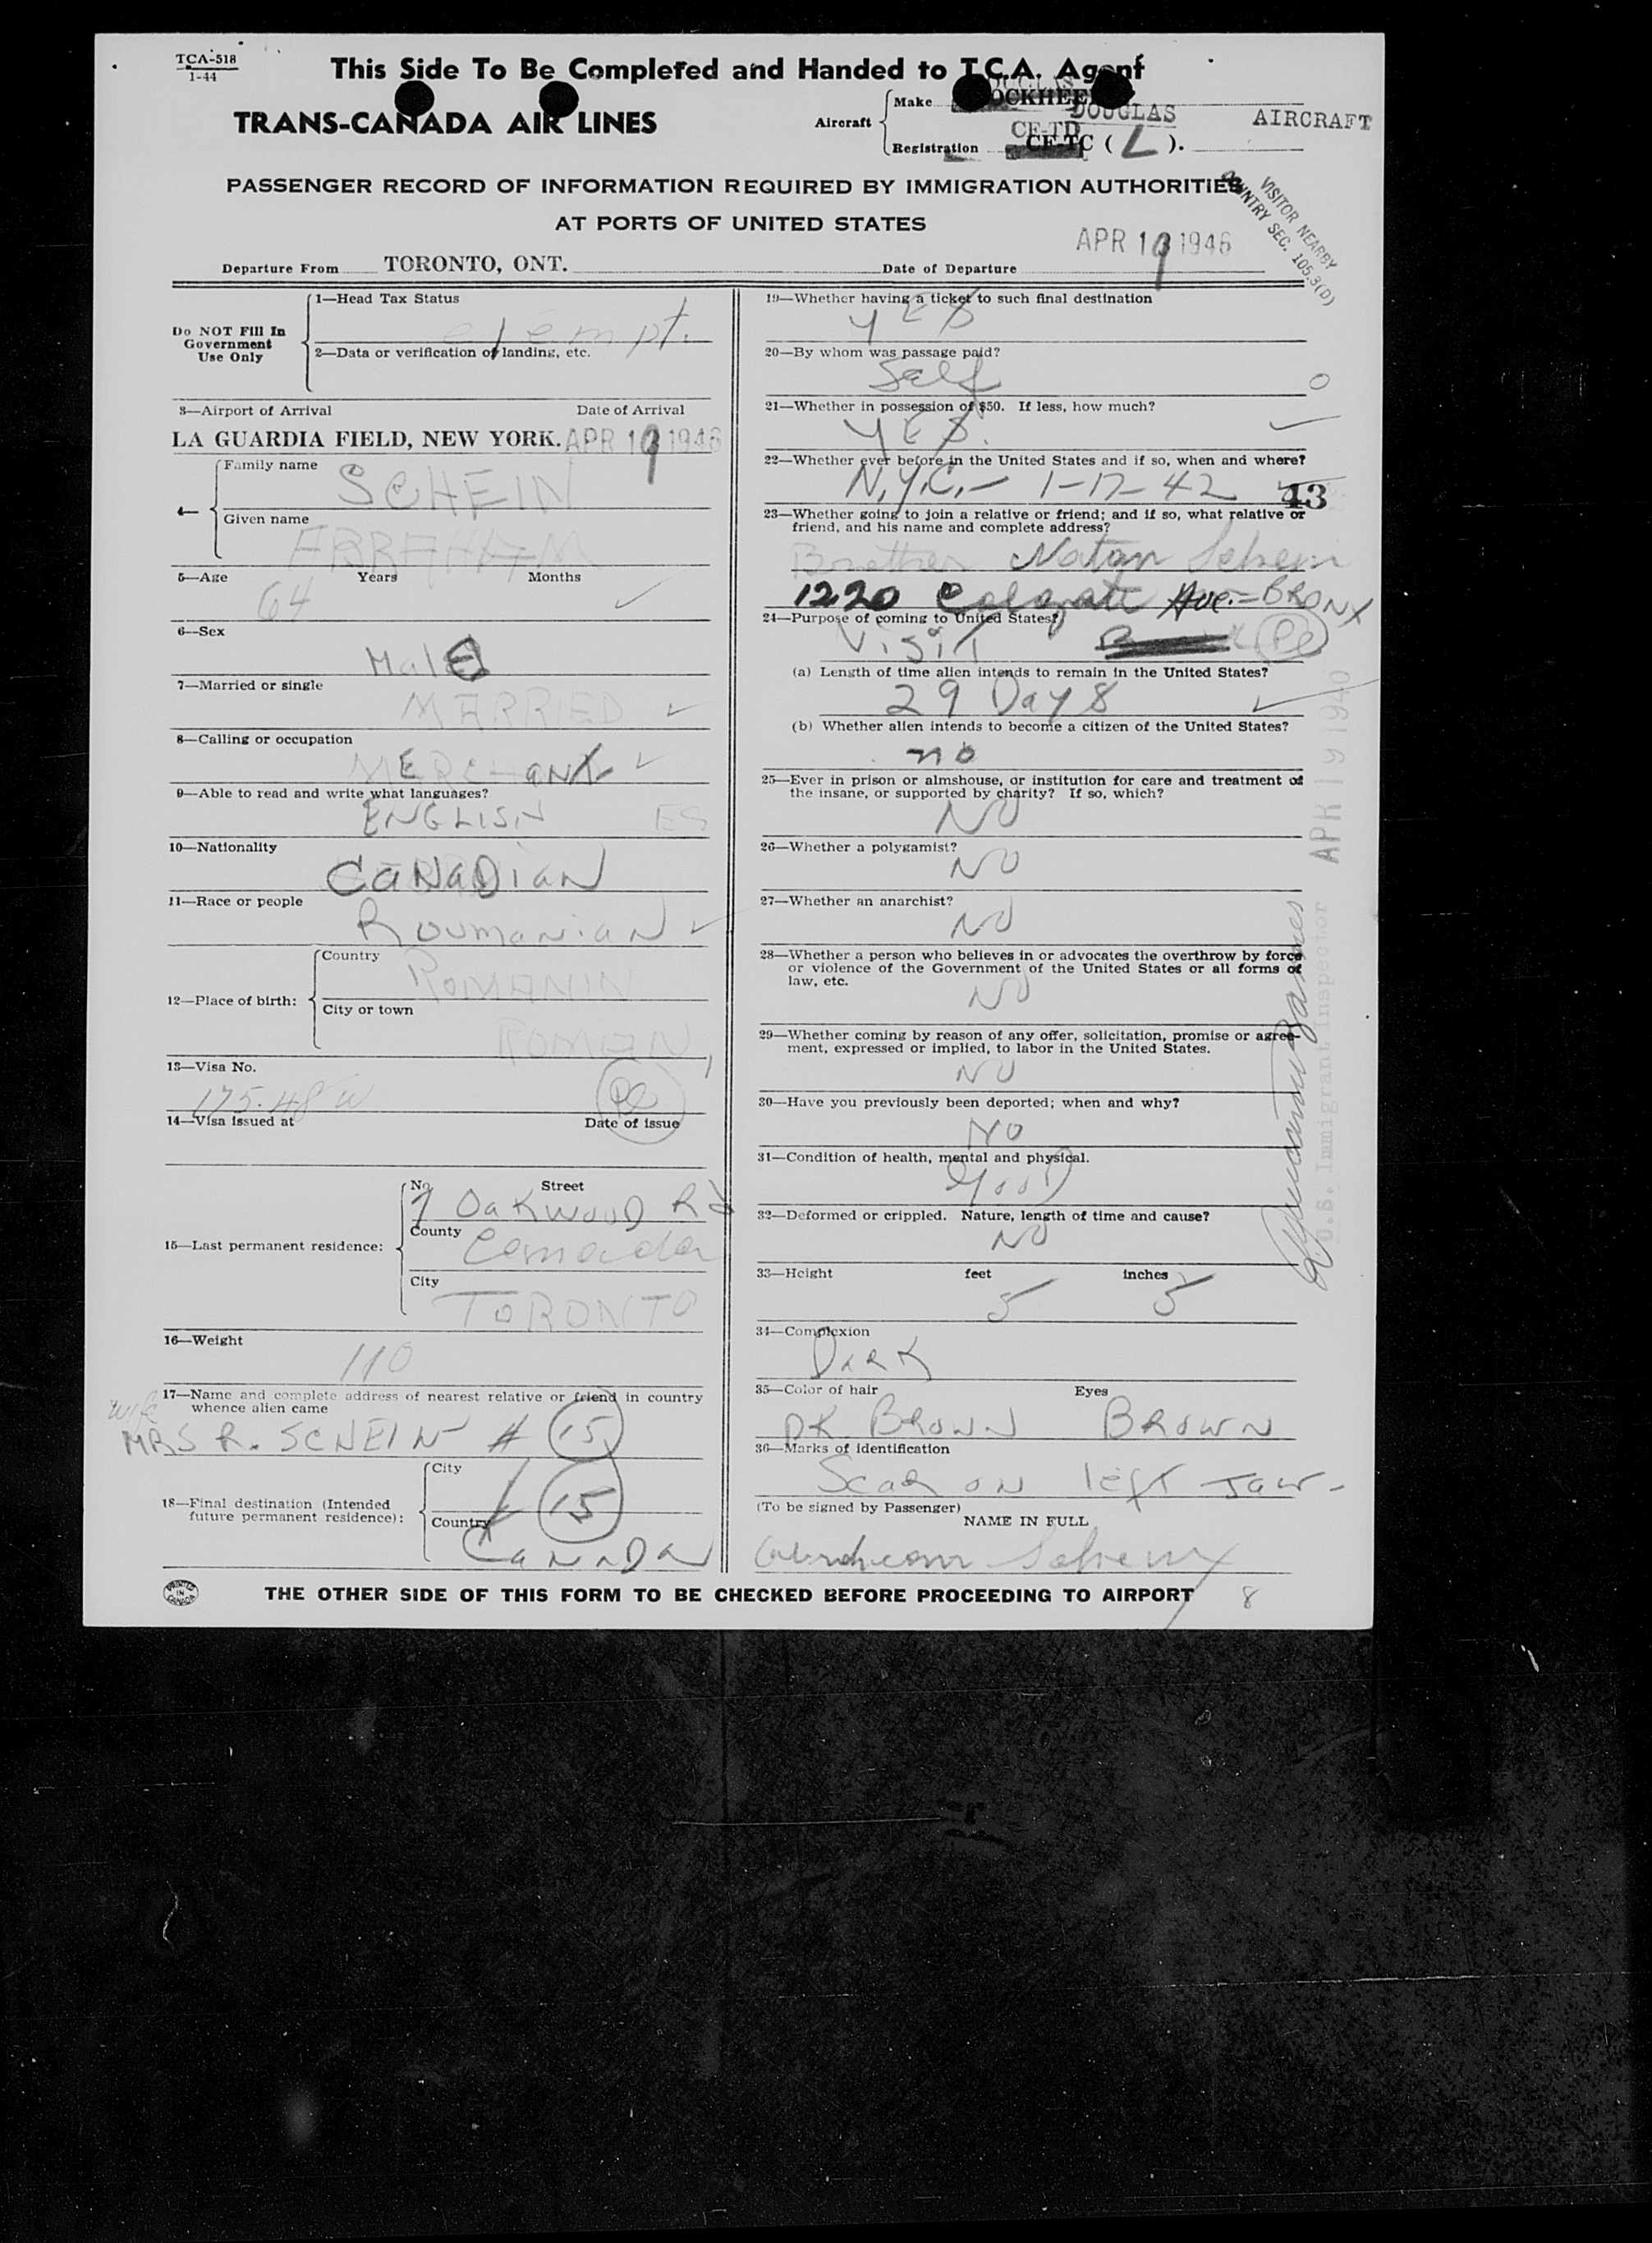 TCA-518
1-44
This Side To Be Completed and Handed to T.C.A. Agent
TRANS-CANADA AIR LINES
Aircraft
Make DOUGLAS
AIRCRAFT
Registration CF-TD
CF-TC ( L ).
PASSENGER RECORD OF INFORMATION REQUIRED BY IMMIGRATION AUTHORITIES
AT PORTS OF UNITED STATES
VISITOR NEARBY
COUNTRY SEC. 105.3(D)
Departure From TORONTO, ONT.
Date of Departure APR 19 1946
Do NOT Fill In
Government
Use Only
1—Head Tax Status
exempt.
2—Data or verification of landing, etc.
3—Airport of Arrival Date of Arrival
LA GUARDIA FIELD, NEW YORK. APR 19 1946
4—
Family name
SCHEIN
Given name
ABRAHAM
5—Age Years Months
64
6—Sex
MalE
7—Married or single
MARRIED
8—Calling or occupation
MERCHANT
9—Able to read and write what languages?
ENGLISH
10—Nationality
CANADIAN
11—Race or people
Roumanian
12—Place of birth:
Country
ROMANIN
City or town
ROMAN
13—Visa No.
175.48
14—Visa issued at Date of issue
15—Last permanent residence:
No. Street
7 OaKwooD Rd
County
Canada
City
TORONTO
16—Weight
110
17—Name and complete address of nearest relative or friend in country
whence alien came
wife
MRS R. SCHEIN # 15
18—Final destination (Intended
future permanent residence):
City
15
Country
CANADA
19—Whether having a ticket to such final destination
YES
20—By whom was passage paid?
Self
0
21—Whether in possession of $50. If less, how much?
YES.
22—Whether ever before in the United States and if so, when and where?
N.Y.C.— 1-17-42
43
23—Whether going to join a relative or friend; and if so, what relative or
friend, and his name and complete address?
Brother Natan Schein
1220 Colgate Ave.= BRONX
24—Purpose of coming to United States?
VisiT
(a) Length of time alien intends to remain in the United States?
29 DayS
(b) Whether alien intends to become a citizen of the United States?
no
25—Ever in prison or almshouse, or institution for care and treatment of
the insane, or supported by charity? If so, which?
NO
26—Whether a polygamist?
NO
27—Whether an anarchist?
NO
28—Whether a person who believes in or advocates the overthrow by force
or violence of the Government of the United States or all forms of
law, etc.
NO
29—Whether coming by reason of any offer, solicitation, promise or agree-
ment, expressed or implied, to labor in the United States.
NO
30—Have you previously been deported; when and why?
NO
31—Condition of health, mental and physical.
Good
32—Deformed or crippled. Nature, length of time and cause?
NO
33—Height feet inches
5 5
34—Complexion
DARK
35—Color of hair Eyes
DK BROWN BROWN
36—Marks of identification
Scar on left Jaw-
(To be signed by Passenger)
NAME IN FULL
Abraham Schein
U.S. Immigrant Inspector
PRINTED IN CANADA
THE OTHER SIDE OF THIS FORM TO BE CHECKED BEFORE PROCEEDING TO AIRPORT
8